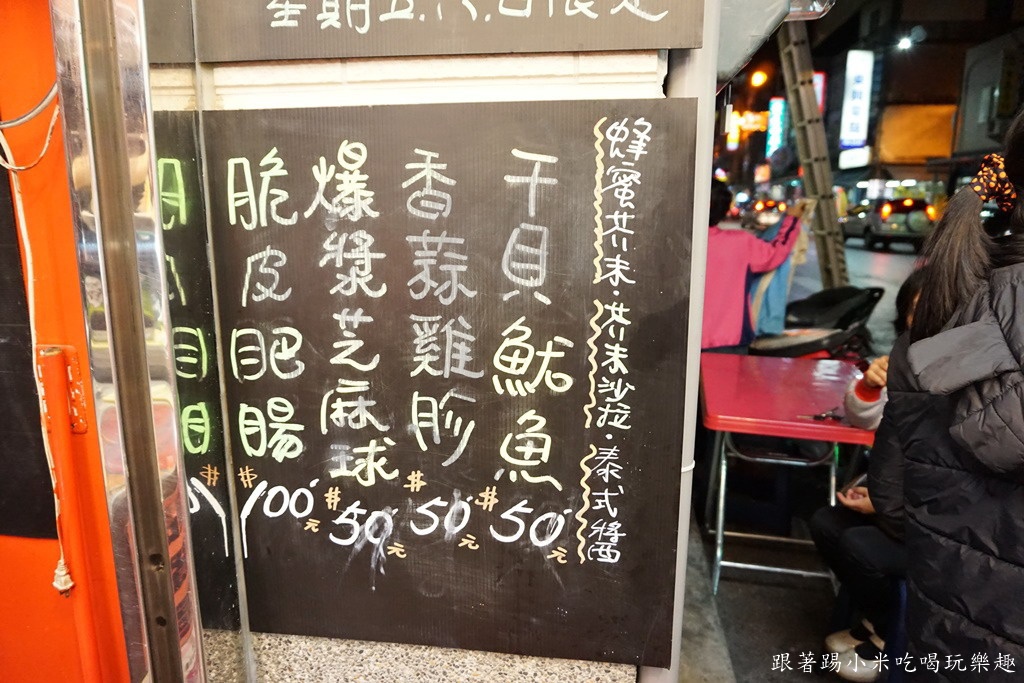 星期五.六.日限定
蜂蜜芥末.芥末沙拉.泰式醬
干貝魷魚 #50元
香蒜雞胗 #50元
爆漿芝麻球 #50元
脆皮肥腸 #100元
跟著踢小米吃喝玩樂趣